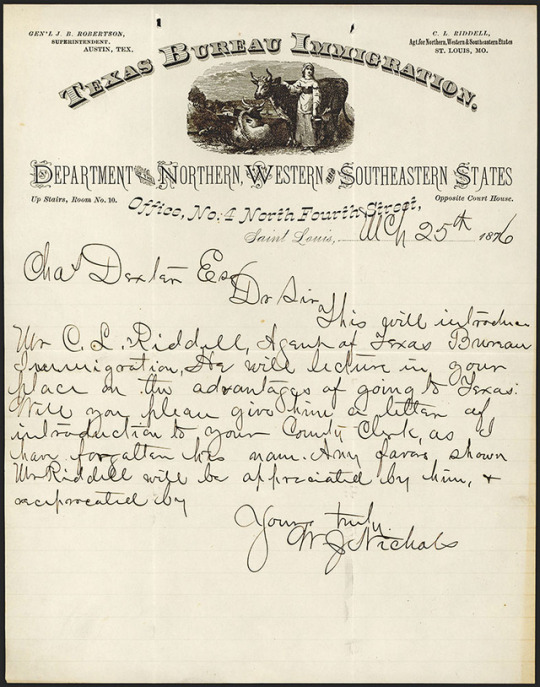 GEN'L J. B. ROBERTSON,
SUPERINTENDENT.
AUSTIN, TEX.
C. L. RIDDELL,
Agt. for Northern, Western & Southeastern States
ST. LOUIS, MO.
TEXAS BUREAU IMMIGRATION.
DEPARTMENT OF THE NORTHERN, WESTERN AND SOUTHEASTERN STATES
Up Stairs, Room No. 10.
Opposite Court House.
Office, No. 4 North Fourth Street,
Saint Louis, Mch 25th 1876
Chas Dexter Esq
Dr Sir
This will introduce
Mr C. L. Riddell, Agent of Texas Bureau
Immigration, He will lecture in your
place on the advantages of going to Texas.
Will you please give him a letter of
introduction to your County Clerk, as I
have forgotten his name. Any favor shown
Mr Riddell will be appreciated by him, &
reciprocated by
Yours truly.
W J Nichols